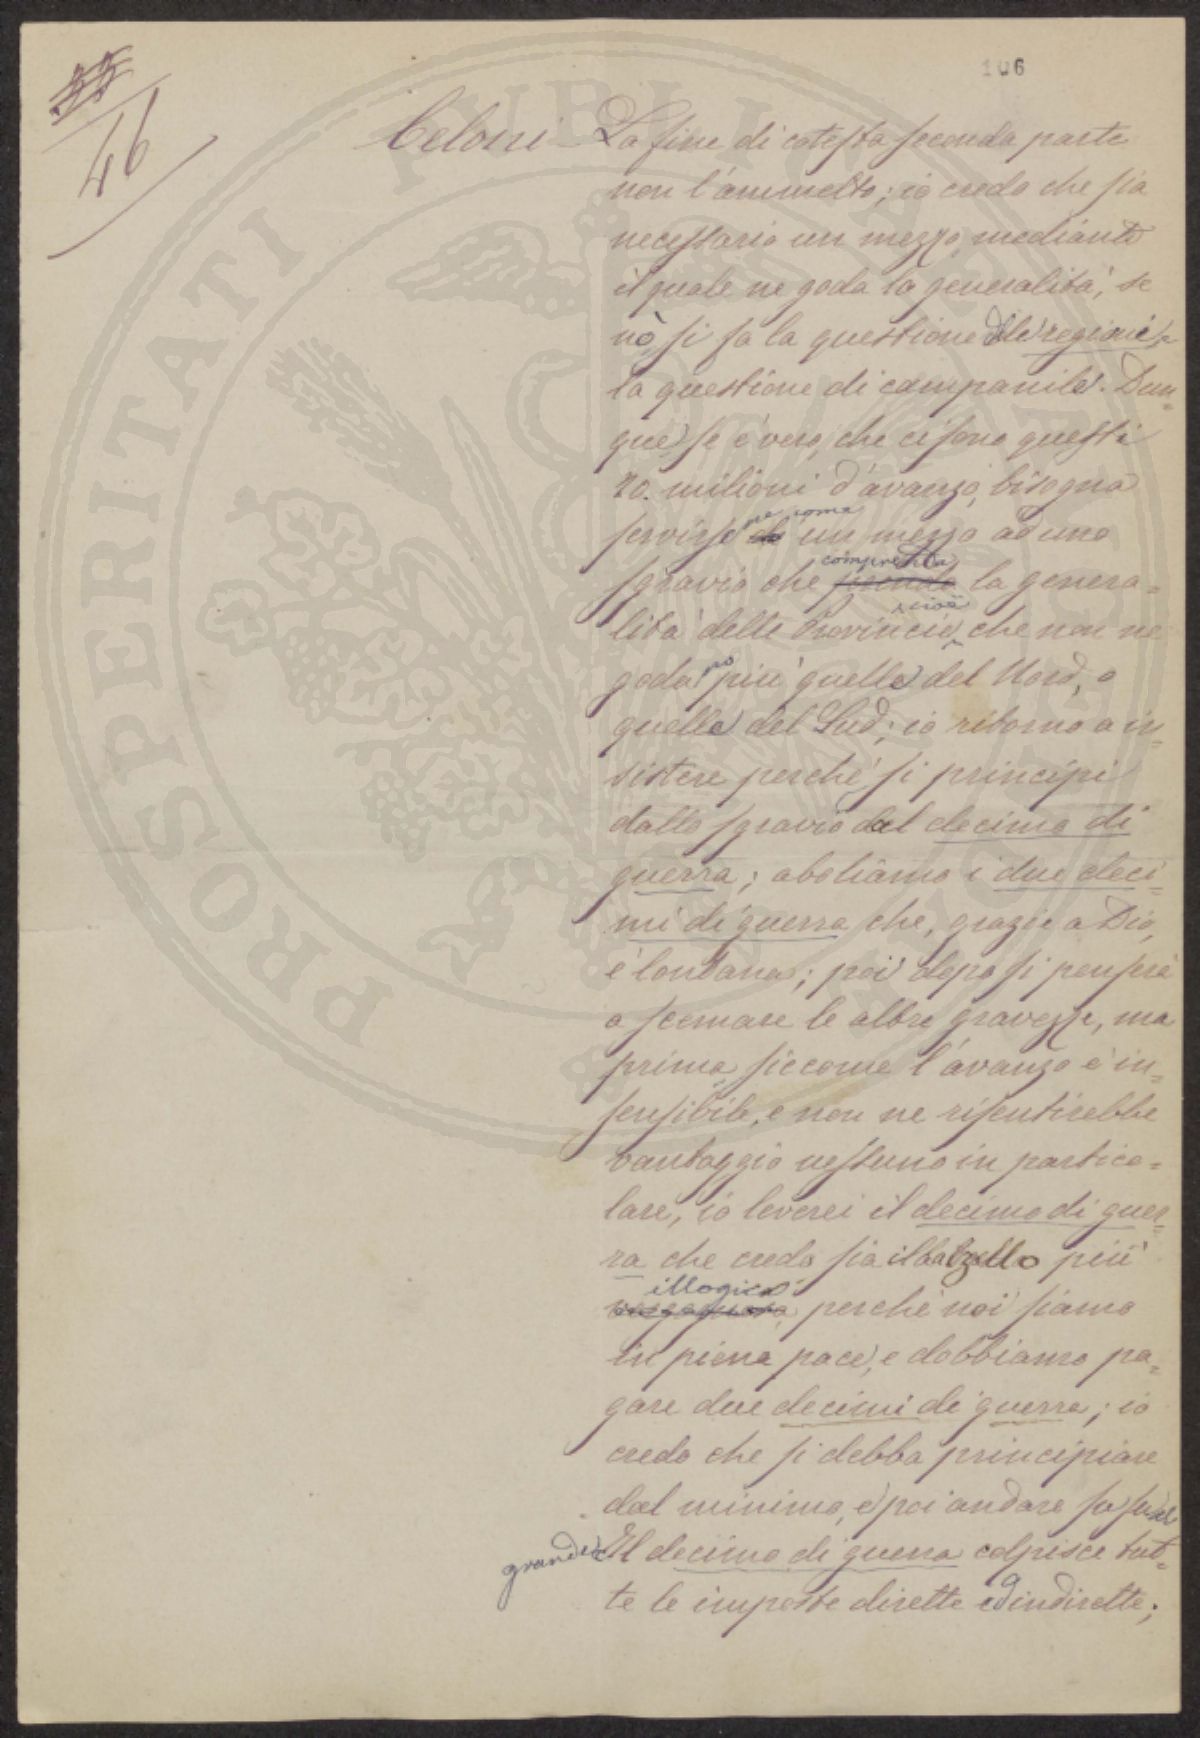 106
46
Celoni - La fine di cotesta seconda parte
non l'ammetto; io credo che sia
necessario un mezzo mediante
il quale ne goda la generalità, se
nò si fa la questione di le regioni,
la questione di campanile. Dun=
que se è vero, che ci sono questi
20. milioni d'avanzo, bisogna
servirsene come un mezzo ad uno
sgravio che comprenda la genera=
lità delle Provincie, cioè che non ne
goda più quelle del Nord, o
quelle del Sud; io ritorno a in=
sistere perchè si principi
dallo sgravio del decimo di
guerra; aboliamo i due deci=
mi di guerra che, grazie a Dio,
è lontana; poi dopo si penserà
a scemare le altre gravezze, ma
prima, siccome l'avanzo è in=
sensibile, e non ne risentirebbe
vantaggio nessuno in partico=
lare, io leverei il decimo di guer=
ra che credo sia il balzello più
illogico, perchè noi siamo
in piena pace, e dobbiamo pa=
gare due decimi di guerra; io
credo che si debba principiare
dal minimo, e poi andare
grande. Il decimo di guerra colpisce tut=
te le imposte dirette ed indirette;
PROSPERITATI PUBLICAE